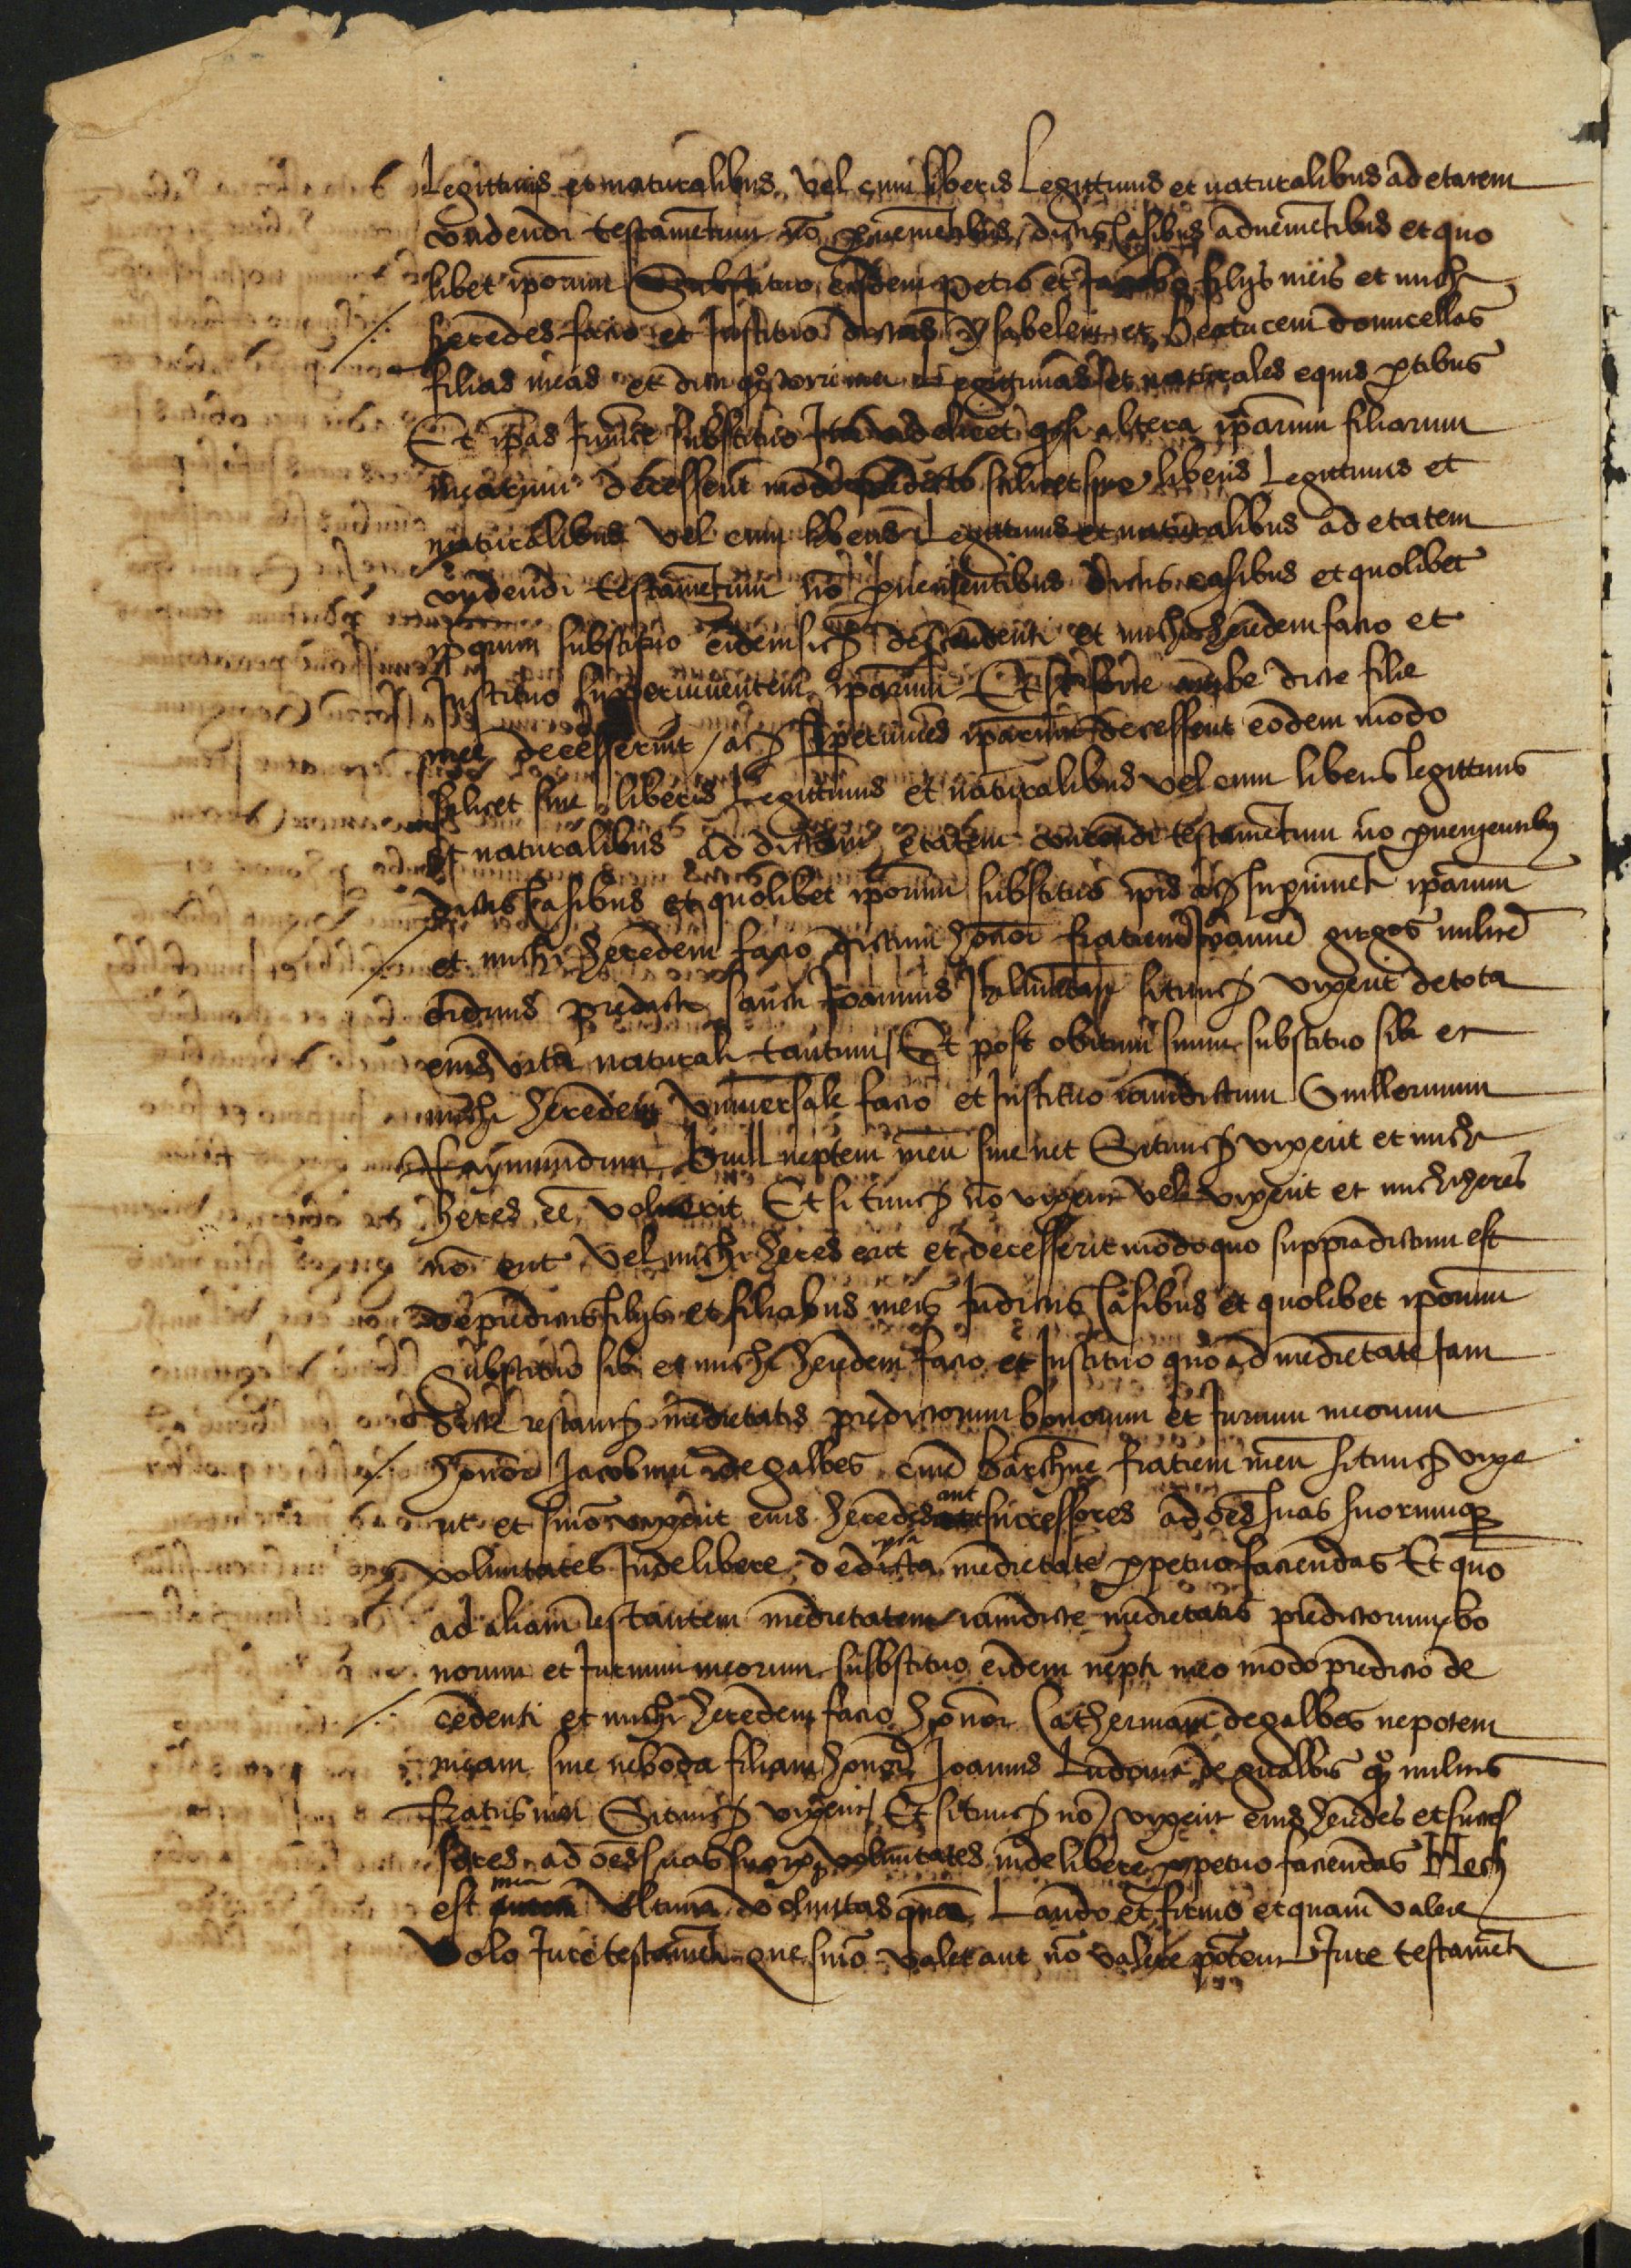 Legittimis et naturalibus vel cum liberis Legittimis et naturalibus ad etatem
condendi testamentum no pervenientibus dictis Casibus advenientibus et quo
libet iporum Substituo eisdem petro et Jacobo filijs meis et michi
heredes facio et Instituo dictas ysabelem et Beatricem domicellas
filias meas et dicte qo uxoris mee legittimas et naturales equis ptibus
Et ipas Invicem substituo Ita videlicet q si altera iparum filiarum
mearum decesserit modo predicto scilicet sine liberis Legittimis et
naturalibus vel cum liberis Legittimis et naturalibus ad etatem
condendi testamentum no pervenientibus dictis casibus et quolibet
iporum substituo eidem sich decedenti et michi heredem facio et
Instituo superviventem iparum Et si forte ambe dicte filie
mee decesserint / ac supervives iparum decesserit eodem modo
scilicet sine liberis Legittimis et naturalibus vel cum liberis legittimis
et naturalibus ad dictam etatem condendi testamentum no pervenientibus
dictis Casibus et quolibet iporum substituo ipis ac supvivent iparum
et michi heredem facio dictum honor fratrem Joannem militem
ordinis predicti sancti Joannis si tunch vixerit de tota
eius vita naturali tantum Et post obitum suum substituo sibi et
michi heredem Universale facio et Instituo iamdictum Guillermum
Raymundum Brull neptem meu sive net Si tunch vixerit et michi
heres ee voluerit Et si tunch no vixerit vel vixerit et michi heres
no erit vel michi heres erit et decesserit modo quo suppradictum est
de predictis filijs et filiabus meis In dictis Casibus et quolibet iporum
Substituo sibi et michi heredem facio et Instituo quo ad medietate Jam
dicte restantis medietatis predictorum bonorum et Jurium meorum
honor Jacobum de galbes cive Barchne fratrem meu si tunch vixe
rit et sino vixerit eius heredes aut successores ad oes suas suorumq
voluntates Inde libere de dicta ipsa medietate ppetuo faciendas Et quo
ad aliam restantem medietatem iamdicte medietatis predictorum bo
norum et Jurium meorum substituo eidem nepti meo modo predicto de
cedenti et michi heredem facio honor Catherinam de galbes nepotem
meam sive neboda filiam honor Joannis Ludovici de gualbis qo militis
fratris mei Si tunch vixerit Et si tunch no vixerit eius heredes et succes
sores ad oes suas suorq voluntates inde libere ppetuo faciendas Hec
est mea Ultima voluntas quam Laudo et firmo et quam valere
Volo Jure testamenti que sino valet aut no valere poterit Jure testament